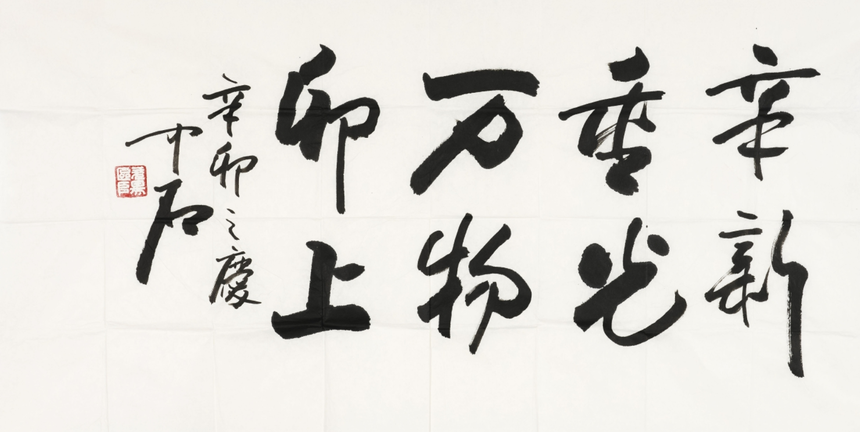 辛新
重光
万物
卯上
辛卯之慶
中石